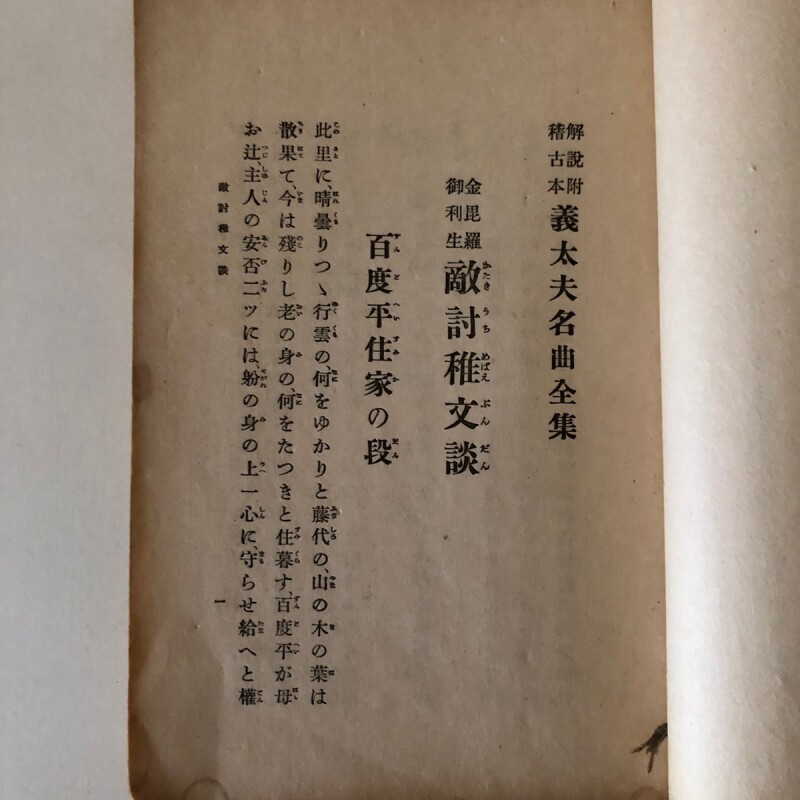 解說附
稽古本
義太夫名曲全集
金毘羅
御利生
敵討稚文談
かたき うち めばえ ぶん だん
百度平住家の段
此里に、晴曇りつゝ行雲の、何をゆかりと藤代の、山の木の葉は
散果て、今は殘りし老の身の、何をたつきと住暮す、百度平が母
お辻、主人の安否二ッには、躮の身の上一心に、守らせ給へと權
敵討稚文談
一